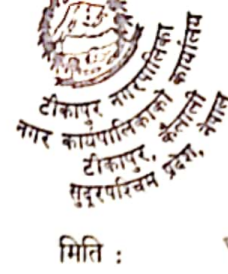 टीकापुर नगरपालिका
नगर कार्यपालिकाको कार्यालय
टीकापुर, कैलाली
सुदूरपश्चिम प्रदेश, नेपाल
मिति :